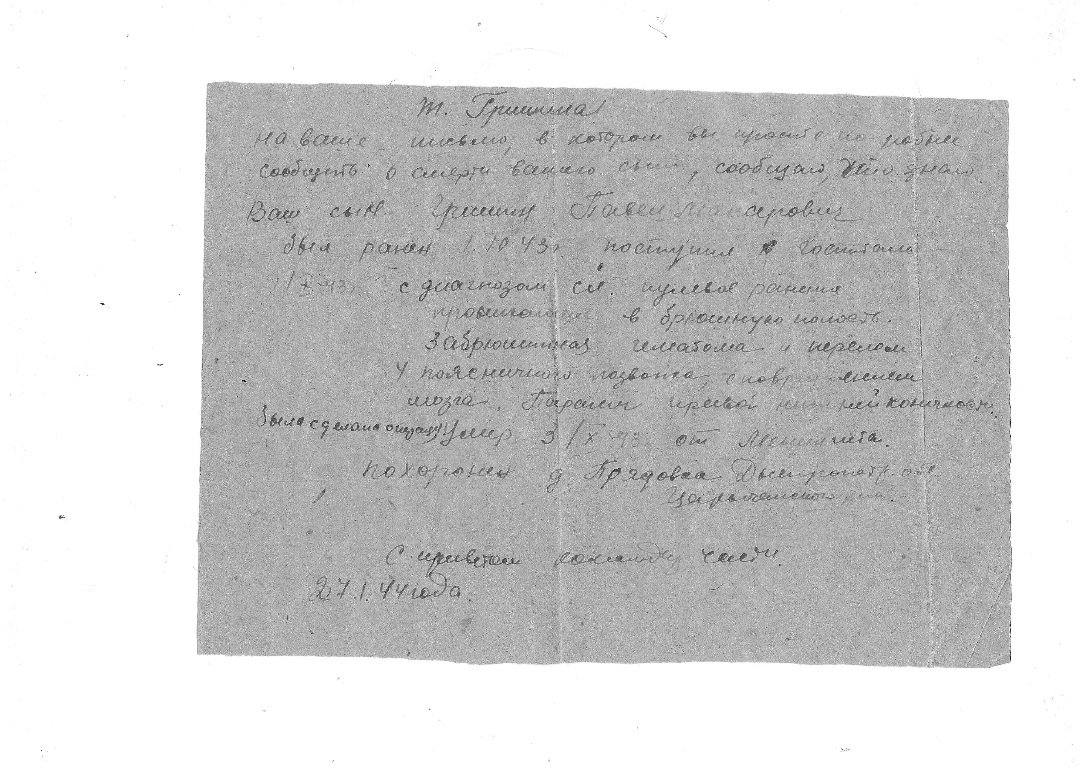 т. Гришина
На ваше письмо, в котором вы просите по
сообщить о смерти вашего сына, сообщаю, что знаю.
Ваш сын Гришин Павел Макарович
был ранен 1.10.43г поступил в госпиталь
1/X-43г. с диагнозом сл. пулевое ранение
в брюшную полость.
Забрюшинная гематома и перелом
4 поясничного позвонка, с повреждением
мозга. Паралич правой нижней конечности.
было сделано операция. Умер 3/X-43г. от Менингита.
похоронен д. Прядовка Днепропетр. обл
Царычанский
С приветом команд части.
27.1.44 года.